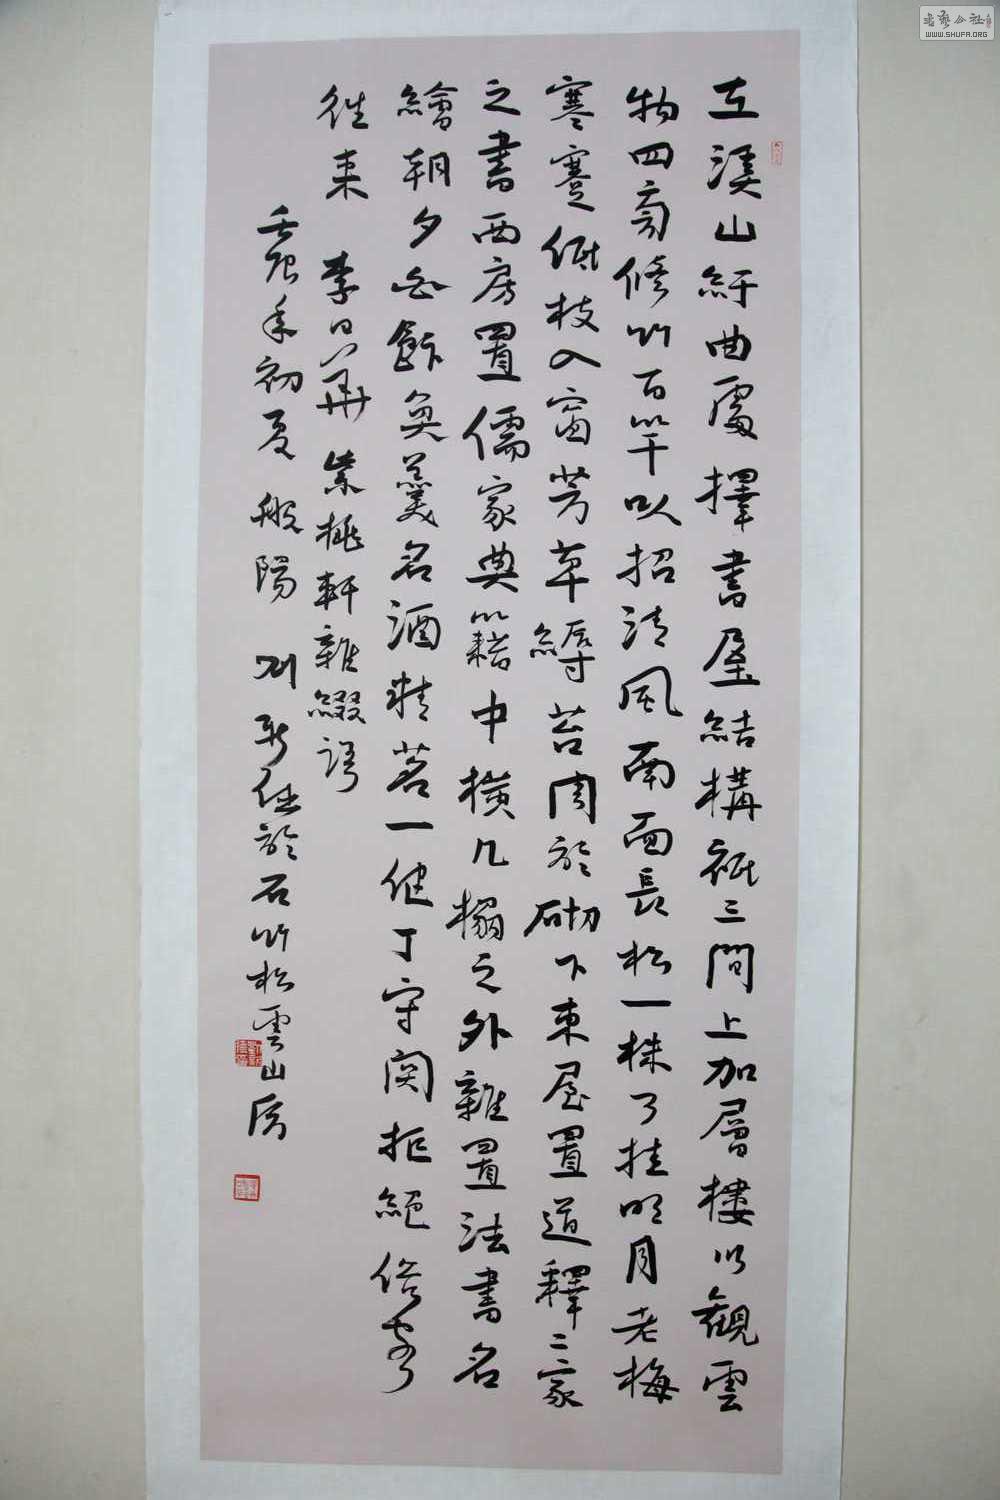 在溪山紆曲處擇書屋結構祇三間上加層樓以觀雲
物四旁修竹百竿以招清風南面長松一株可挂明月老梅
寒蹇低枝入窗芳草縟苔周於砌下東屋置道釋二家
之書西房置儒家典籍中橫几榻之外雜置法書名
繪朝夕白飯魚羹名酒精茗一健丁守關拒絕俗客
往來 李日華紫桃軒雜綴語
壬辰年初夏 般陽 劉新德於石竹松雲山房
書藝公社
WWW.SHUFA.ORG